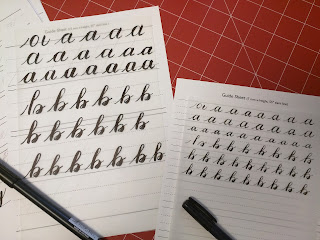 Guide Sheet
a a a a
a a a a a a a
a a a a a a a a
b b b b b
b b b b b b
b b b b b b b
Guide Sheet
a a a a a
a a a a a a a
a a a a a a a a a
b b b b b b
b b b b b b b
b b b b b b b b
b b b b b b b b